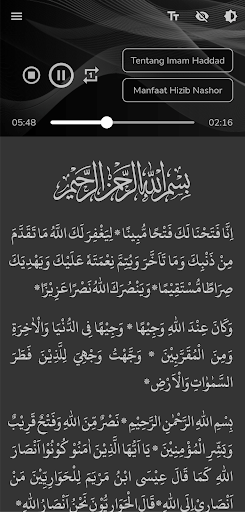 Tentang Imam Haddad
Manfaat Hizib Nashor
05:48
02:16
بِسْمِ اللهِ الرَّحْمٰنِ الرَّحِيْمِ
إِنَّا فَتَحْنَا لَكَ فَتْحًا مُّبِينًا * لِيَغْفِرَ لَكَ اللّٰهُ مَا تَقَدَّمَ
مِنْ ذَنْبِكَ وَمَا تَأَخَّرَ وَيُتِمَّ نِعْمَتَهُ عَلَيْكَ وَيَهْدِيَكَ
صِرَاطًا مُسْتَقِيْمًا * وَيَنْصُرَكَ اللهُ نَصْرًا عَزِيْزًا *
وَكَانَ عِنْدَ اللهِ وَجِيْهًا * وَجِيْهًا فِى الدُّنْيَا وَالْاٰخِرَةِ
وَمِنَ الْمُقَرَّبِيْنَ * وَجَّهْتُ وَجْهِيَ لِلَّذِيْ فَطَرَ
السَّمٰوَاتِ وَالْأَرْضِ *
بِسْمِ اللهِ الرَّحْمٰنِ الرَّحِيْمِ * نَصْرٌ مِّنَ اللهِ وَفَتْحٌ قَرِيْبٌ
وَبَشِّرِ الْمُؤْمِنِيْنَ * يَا اَيُّهَا الَّذِيْنَ اٰمَنُوْ كُوْنُوْا اَنْصَارَ
اللهِ كَمَا قَالَ عِيْسَى ابْنُ مَرْيَمَ لِلْحَوَارِيّيْنَ مَنْ
اَنْصَارِيْ اِلَى اللهِ * قَالَ الْحَوَارِيُّوْنَ نَحْنُ اَنْصَارُ اللهِ *